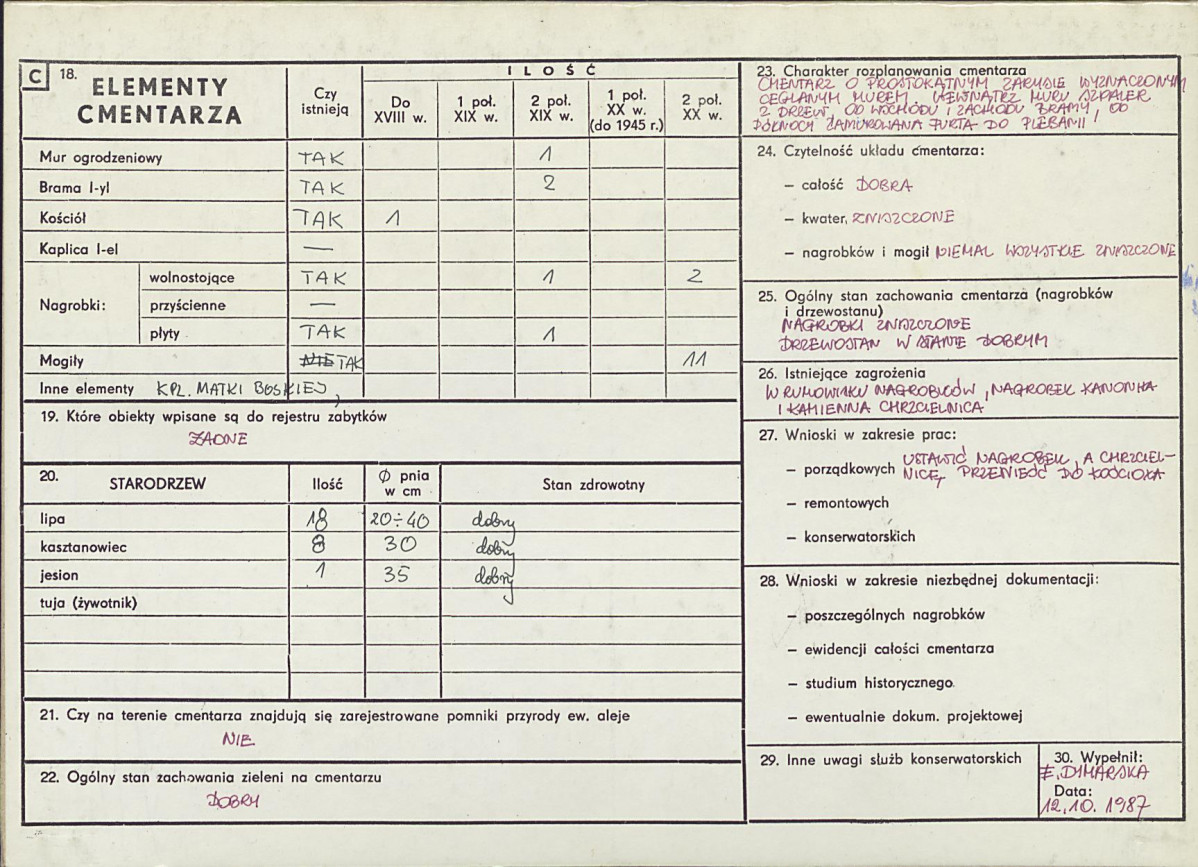 C 18. ELEMENTY CMENTARZA
Czy istnieją
ILOŚĆ
Do XVIII w.
1 poł. XIX w.
2 poł. XIX w.
1 poł. XX w. (do 1945 r.)
2 poł. XX w.
Mur ogrodzeniowy TAK 1
Brama I-yl TAK 2
Kościół TAK 1
Kaplica I-el —
Nagrobki:
wolnostojące TAK 1 2
przyścienne —
płyty TAK 1
Mogiły NIE TAK 11
Inne elementy KPL. MATKI BOSKIEJ,
19. Które obiekty wpisane są do rejestru zabytków
ŻADNE
20. STARODRZEW Ilość Ø pnia w cm Stan zdrowotny
lipa 18 20÷40 dobry
kasztanowiec 8 30 dobry
jesion 1 35 dobry
tuja (żywotnik)
21. Czy na terenie cmentarza znajdują się zarejestrowane pomniki przyrody ew. aleje
NIE
22. Ogólny stan zachowania zieleni na cmentarzu
DOBRY
23. Charakter rozplanowania cmentarza
CMENTARZ O PROSTOKĄTNYM ZARYSIE WYZNACZONYM
CEGLANYM MUREM. WEWNĄTRZ MURU SZPALER
Z DRZEW. OD WSCHODU I ZACHODU BRAMY, OD
PÓŁNOCY ZAMUROWANA FURTA DO PLEBANII
24. Czytelność układu cmentarza:
– całość DOBRA
– kwater, ZNISZCZONE
– nagrobków i mogił NIEMAL WSZYSTKIE ZNISZCZONE
25. Ogólny stan zachowania cmentarza (nagrobków
i drzewostanu)
NAGROBKI ZNISZCZONE
DRZEWOSTAN W STANIE DOBRYM
26. Istniejące zagrożenia
W RUMOWISKU NAGROBKÓW, NAGROBEK KANONIKA
I KAMIENNA CHRZCIELNICA
27. Wnioski w zakresie prac:
– porządkowych USTAWIĆ NAGROBEK, A CHRZCIEL-
NICĘ PRZENIEŚĆ DO KOŚCIOŁA
– remontowych
– konserwatorskich
28. Wnioski w zakresie niezbędnej dokumentacji:
– poszczególnych nagrobków
– ewidencji całości cmentarza
– studium historycznego
– ewentualnie dokum. projektowej
29. Inne uwagi służb konserwatorskich
30. Wypełnił:
E. DYMARSKA
Data:
12.10.1987